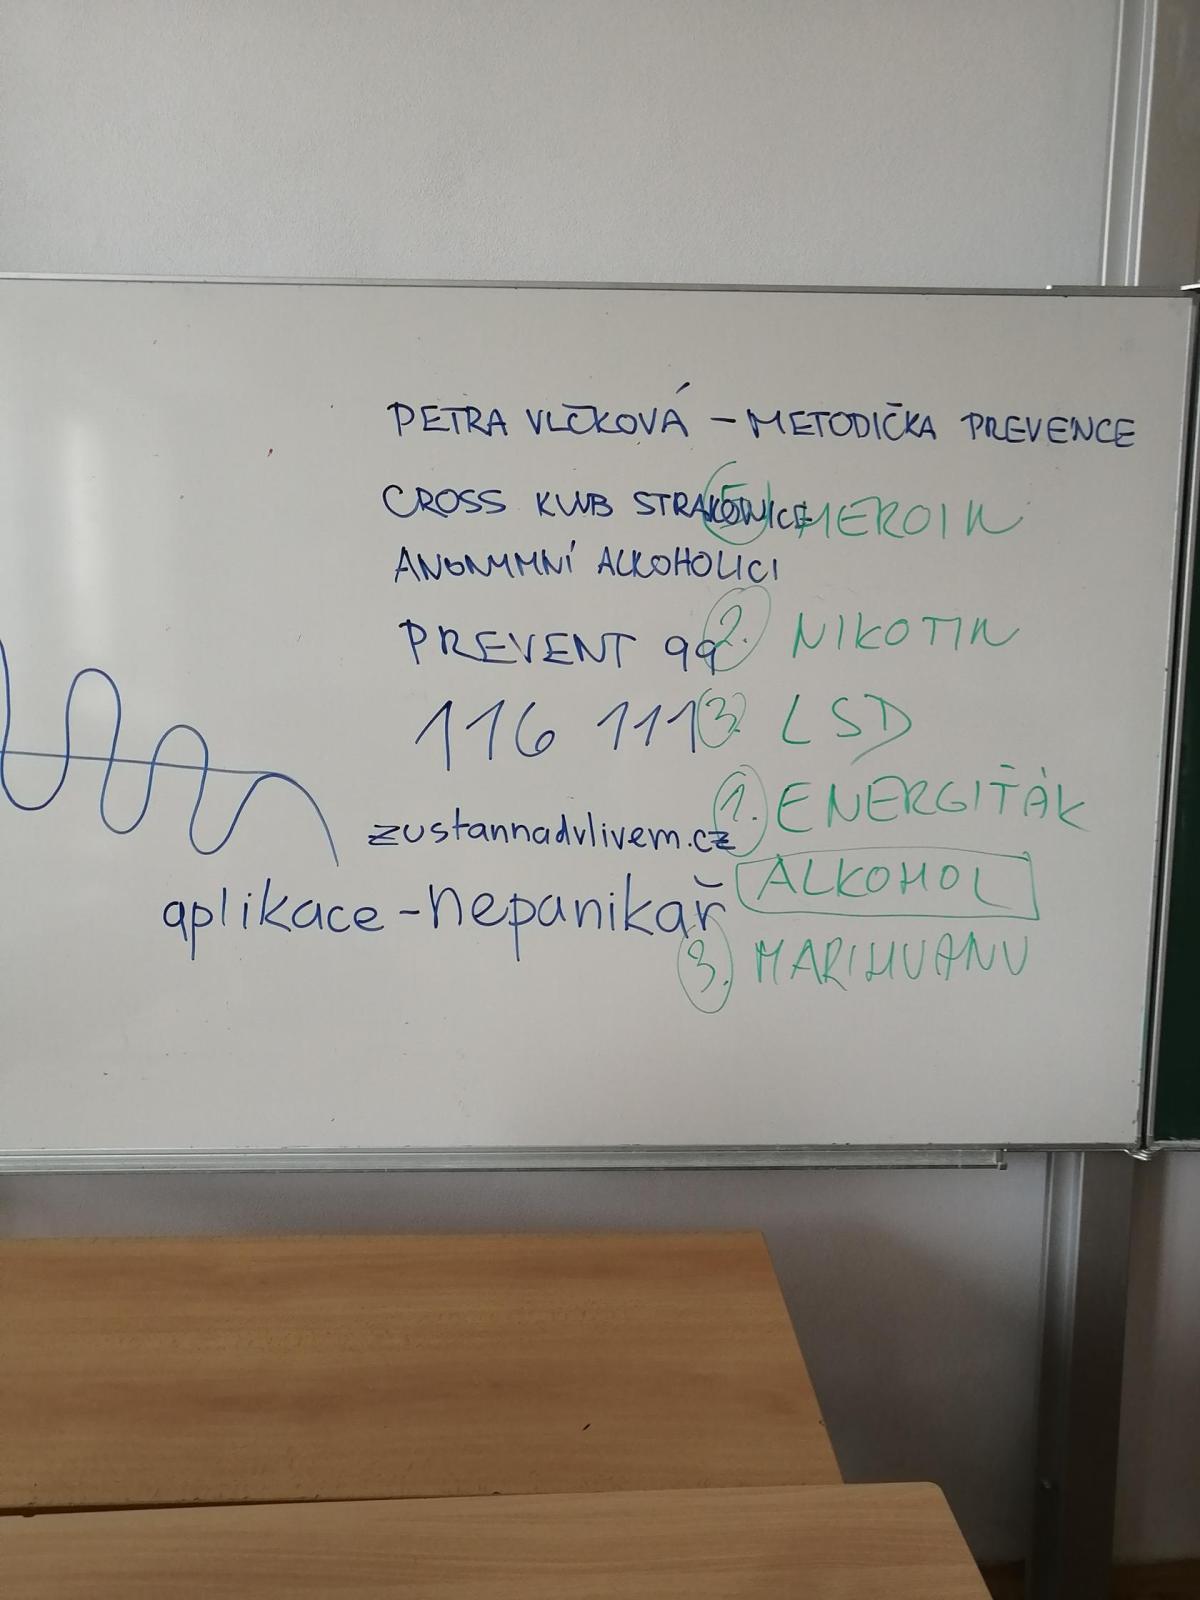 PETRA VLČKOVÁ – METODIČKA PREVENCE
CROSS KLUB STRAKONICE
5 HEROIN
ANONYMNÍ ALKOHOLICI
PREVENT 99
2. NIKOTIN
116 111
3. LSD
1. ENERGIŤÁK
zustannadvlivem.cz
ALKOHOL
aplikace – nepanikař
3. MARIHUANU